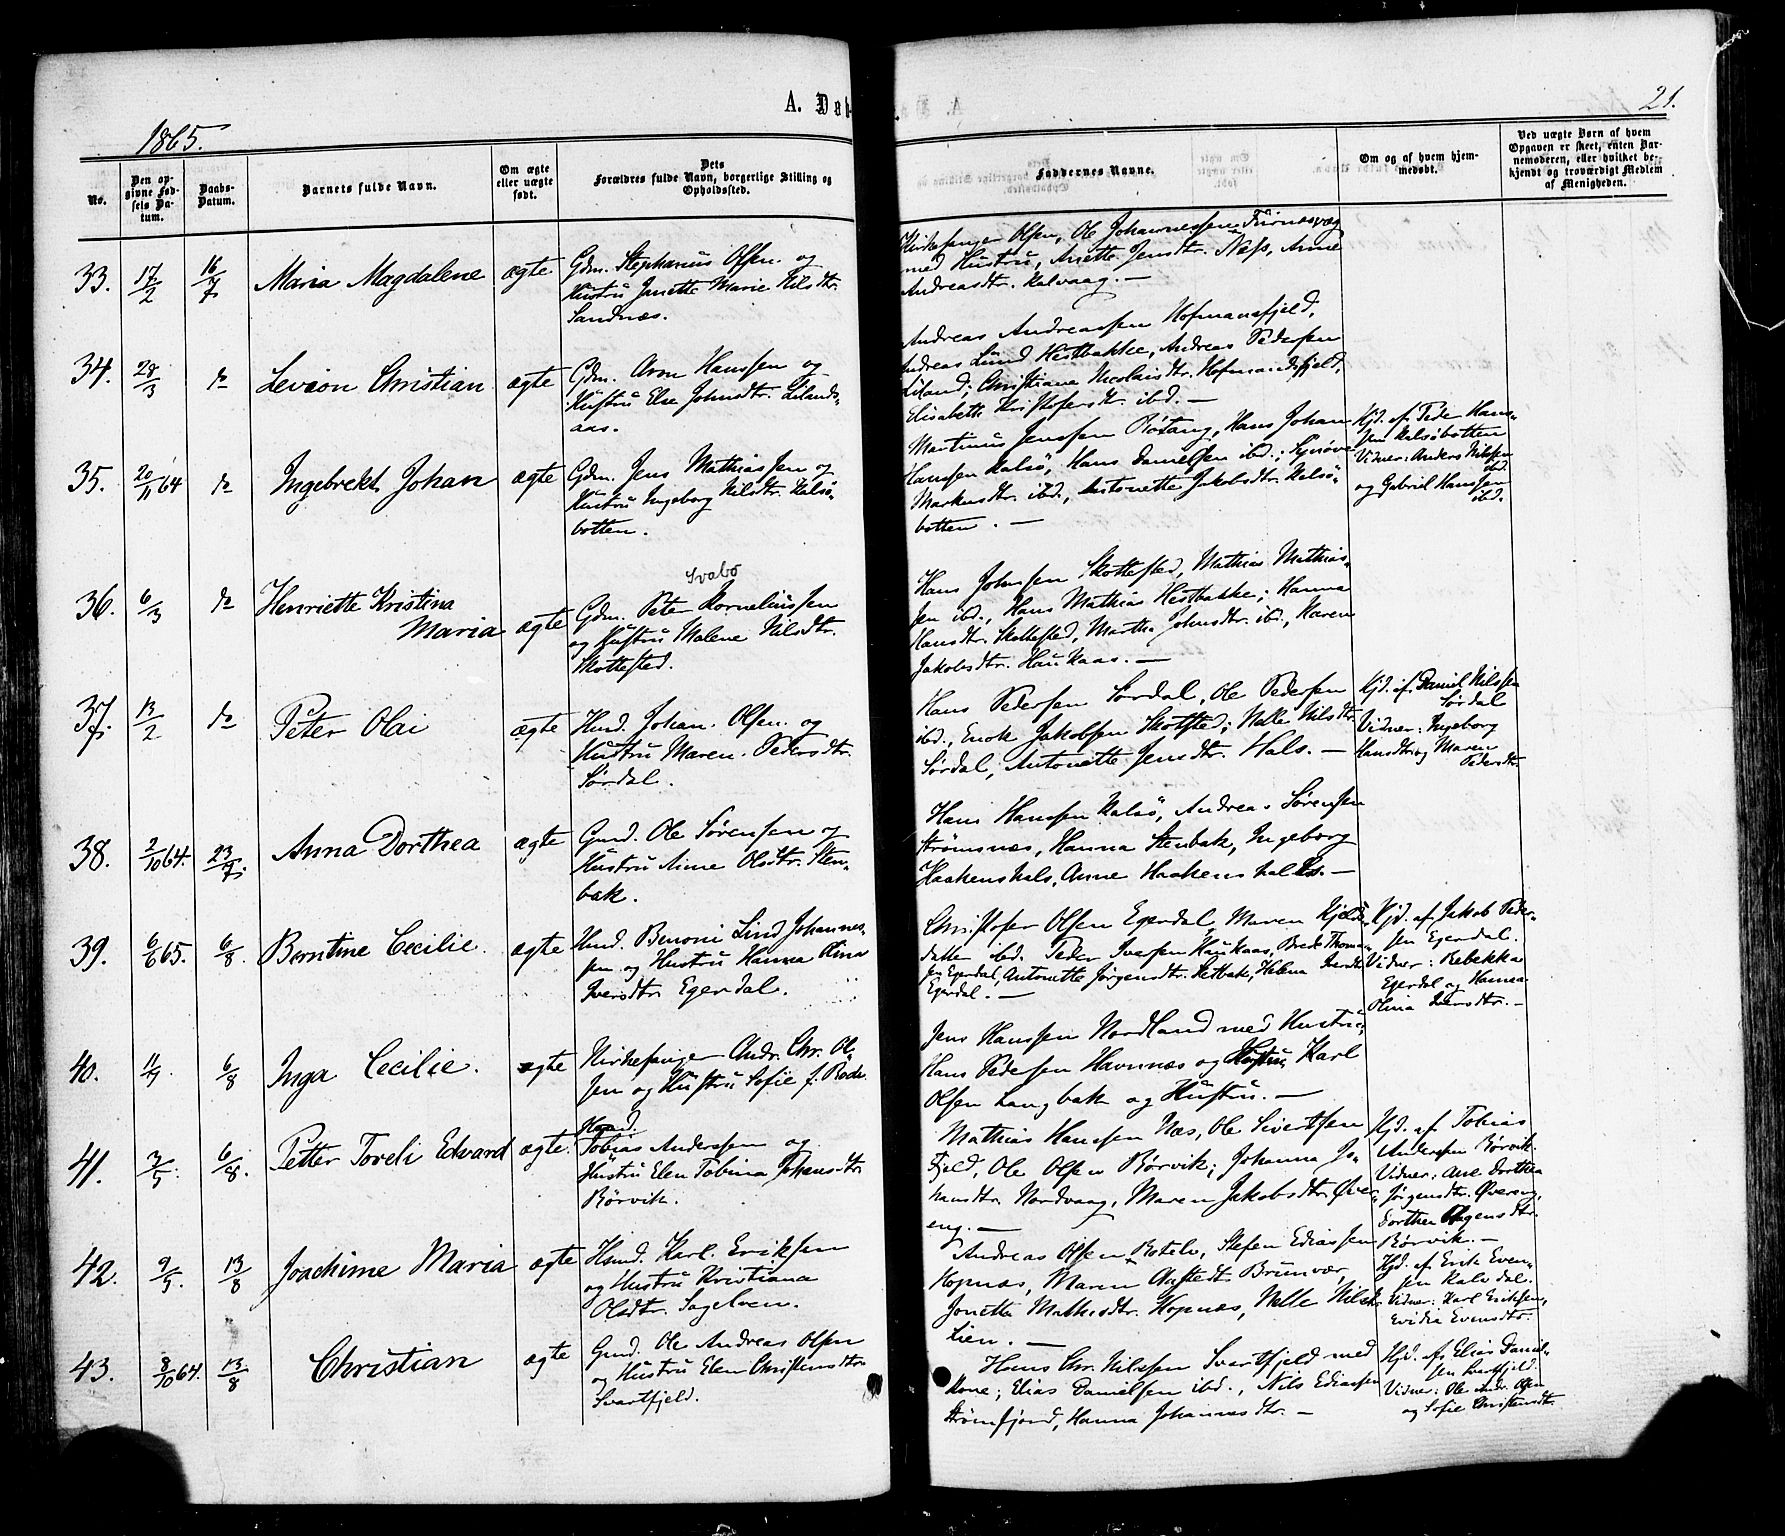 A. Døb
21.
1865.
No.
Den op-
givne Fød-
sels Da-
tum.
Daabs-
Datum.
Barnets fulde Navn.
Om ægte
eller uægte
født.
Dets
Forældres fulde Navn, borgerlige Stilling og
Opholdssted.
Faddernes Navne.
Om og af hvem hjem-
medøbt.
Ved uægte Børn af hvem
Opgaven er skeet, enten Bar-
nemoderen, eller hvilket be-
kjendt og troværdigt Medlem
af Menigheden.
33. 17/2 16/7 Maria Magdalene ægte
Gdm. Stephanus Olsen og
Hustru Janette Marie Nilsdtr.
Sandnæs.
Kirkesanger Olsen, Ole Johannessen
med Hustru, Anette Jensdtr. Næss, Anne
Andreasdtr. Kalvaag. —
34. 28/3 do Levion Christian ægte
Gdm. Aron Hanssen og
Hustru Else Johnsdtr. Lilands-
aas.
Andreas Andreassen Hofmansfjeld,
Andreas Lund Hestbakke, Andreas Pedersen
Liland; Christiana Nicolaisdtr. Hofmandsfjeld,
Elisabeth Kristofersdtr. ibd. —
35. 20/11 64 do Ingebrekt Johan ægte
Gdm. Jens Mathiassen og
Hustru Ingeborg Nilsdtr. Kalsö-
botten.
Martinus Jenssen Røtang, Hans Johan
Hansen Kalsö, Hans Danielsen ibd.; Synøve
Markusdtr. ibd., Antonette Jakobsdtr. Kalsö-
botten. —
Hjd. af Peder Hans-
sen Kalsöbotten
Vidner: Anders Nilssen
ibd.
og Gabriel Hanssen
ibd.
36. 6/3 do Henriette Kristina
Maria ægte
Svabo
Gdm. Peter Korneliussen
og Hustru Malene Nilsdtr.
Skottested.
Hans Johnsen Skottested, Mathias Mathias-
sen ibd., Hans Mathias Hestbakke; Hanna
Hansdtr. Skottested, Martha Johnsdtr. ibd., Karen
Jakobsdtr. Haukaas. —
37. 13/2 do Peter Olai ægte
Husd. Johan Olsen og
Hustru Maren Pedersdtr.
Sørdal.
Hans Pedersen Sørdal, Ole Pedersen
ibd., Enok Jakobsen Skotsted; Nelle Nilsdtr.
Sørdal, Antonette Jensdtr. Hals. —
Hjd. af Daniel Nilssen
Sørdal
Vidner: Ingeborg
Hansdtr. og Maren
Pedersdtr.
38. 2/10 64. 23/7. Anna Dorthea ægte
Gmd. Ole Sørensen og
Hustru Anne Olsdtr. Sten-
bak.
Hans Hanssen Kalsö, Andreas Sørensen
Strømsnæs, Hanna Stenbak, Ingeborg
Haakenshals, Anne Haakenshals. —
39. 6/6 65. 6/8. Berntine Cecilie ægte
Husd. Benoni Lind Johannes-
sen og Hustru Hanna Olina
Iversdtr. Egerdal.
Christofer Olsen Egerdal, Maren Kjelds-
datter ibd. Peder Iversen Haukaas, Brede Thomas-
sen Egerdal, Antonette Jørgensdtr. Hestbak, Helena Iversdtr.
Egerdal. —
Hjd. af Jakob Peder-
sen Egerdal.
Vidner: Rebekka
Egerdal og Hanna
Olina Iversdtr. —
40. 11/7. 6/8 Inga Cecilie. ægte
Kirkesanger Andr. Chr. Ol-
sen og Hustru Sofie f. Rode
Jens Hanssen Nordland med Hustru,
Hans Pedersen Havnnæs og Hustru, Karl
Olsen Langbak og Hustru. —
41. 3/5. 6/8. Petter Toreli Edvard ægte.
Husd.
Tobias Anderssen og
Hustru Elen Tobina Johansdtr.
Børvik.
Mathias Hanssen Næs, Ole Sivertsen
Fjeld, Ole Olsen Børvik; Johanna Jo-
hansdtr. Nordvaag, Maren Jakobsdtr. Øver-
eng. —
Hjd. af Tobias
Anderssen Børvik.
Vidner: Ane Dorthea
Jørgensdtr. Øvereng,
Dorthea Aagensdtr.
Børvik. —
42. 9/5. 13/8 Joachime Maria ægte
Husd. Karl Eriksen
og Hustru Kristiana
Olsdtr. Sagelven.
Andreas Olsen Botelv, Stefen Ediassen
Kopnæs, Maren Aystedt Brunvær,
Jonetta Mathisdtr. Kopnæs, Nelle Nilsdtr.
Lien. —
Hjd. af Erik Even-
sen Kalvdal.
Vidner: Karl Eriksen,
Evidia Evensdtr.
43. 8/10 64. 13/8 Christian ægte
Gmd. Ole Andreas Olsen
og Hustru Elen Christensdtr.
Svartfjeld.
Hans Chr. Nilsen Svartfjeld med
Kone; Elias Danielsen ibd., Nils Ediassen
Strømfjord, Hanna Johannesdtr. —
Hjd. af Elias Daniel-
sen Svartfjeld.
Vidner: Ole Andr. Olsen
og Sofie Christensdtr.